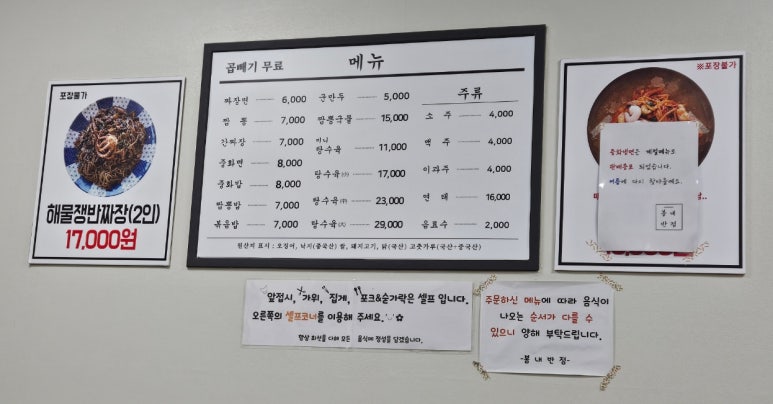 포장불가
해물쟁반짜장(2인)
17,000원
곱빼기 무료
메뉴
짜장면 6,000
짬뽕 7,000
간짜장 7,000
중화면 8,000
중화밥 8,000
짬뽕밥 7,000
볶음밥 7,000
군만두 5,000
짬뽕국물 15,000
미니
탕수육 11,000
탕수육(小) 17,000
탕수육(中) 23,000
탕수육(大) 29,000
주류
소주 4,000
맥주 4,000
이과두 4,000
연태 16,000
음료수 2,000
원산지 표시 : 오징어, 낙지(중국산) 쌀, 돼지고기, 닭(국산) 고춧가루(국산+중국산)
※포장불가
중화냉면은 계절메뉴로
판매종료 되었습니다.
여름에 다시 찾아올게요.
봄내
반점
앞접시, 가위, 집게, 포크&숟가락은 셀프 입니다.
오른쪽의 셀프코너를 이용해 주세요.
항상 최선을 다해 모든 음식에 정성을 담겠습니다.
주문하신 메뉴에 따라 음식이
나오는 순서가 다를 수
있으니 양해 부탁드립니다.
-봄내반점-